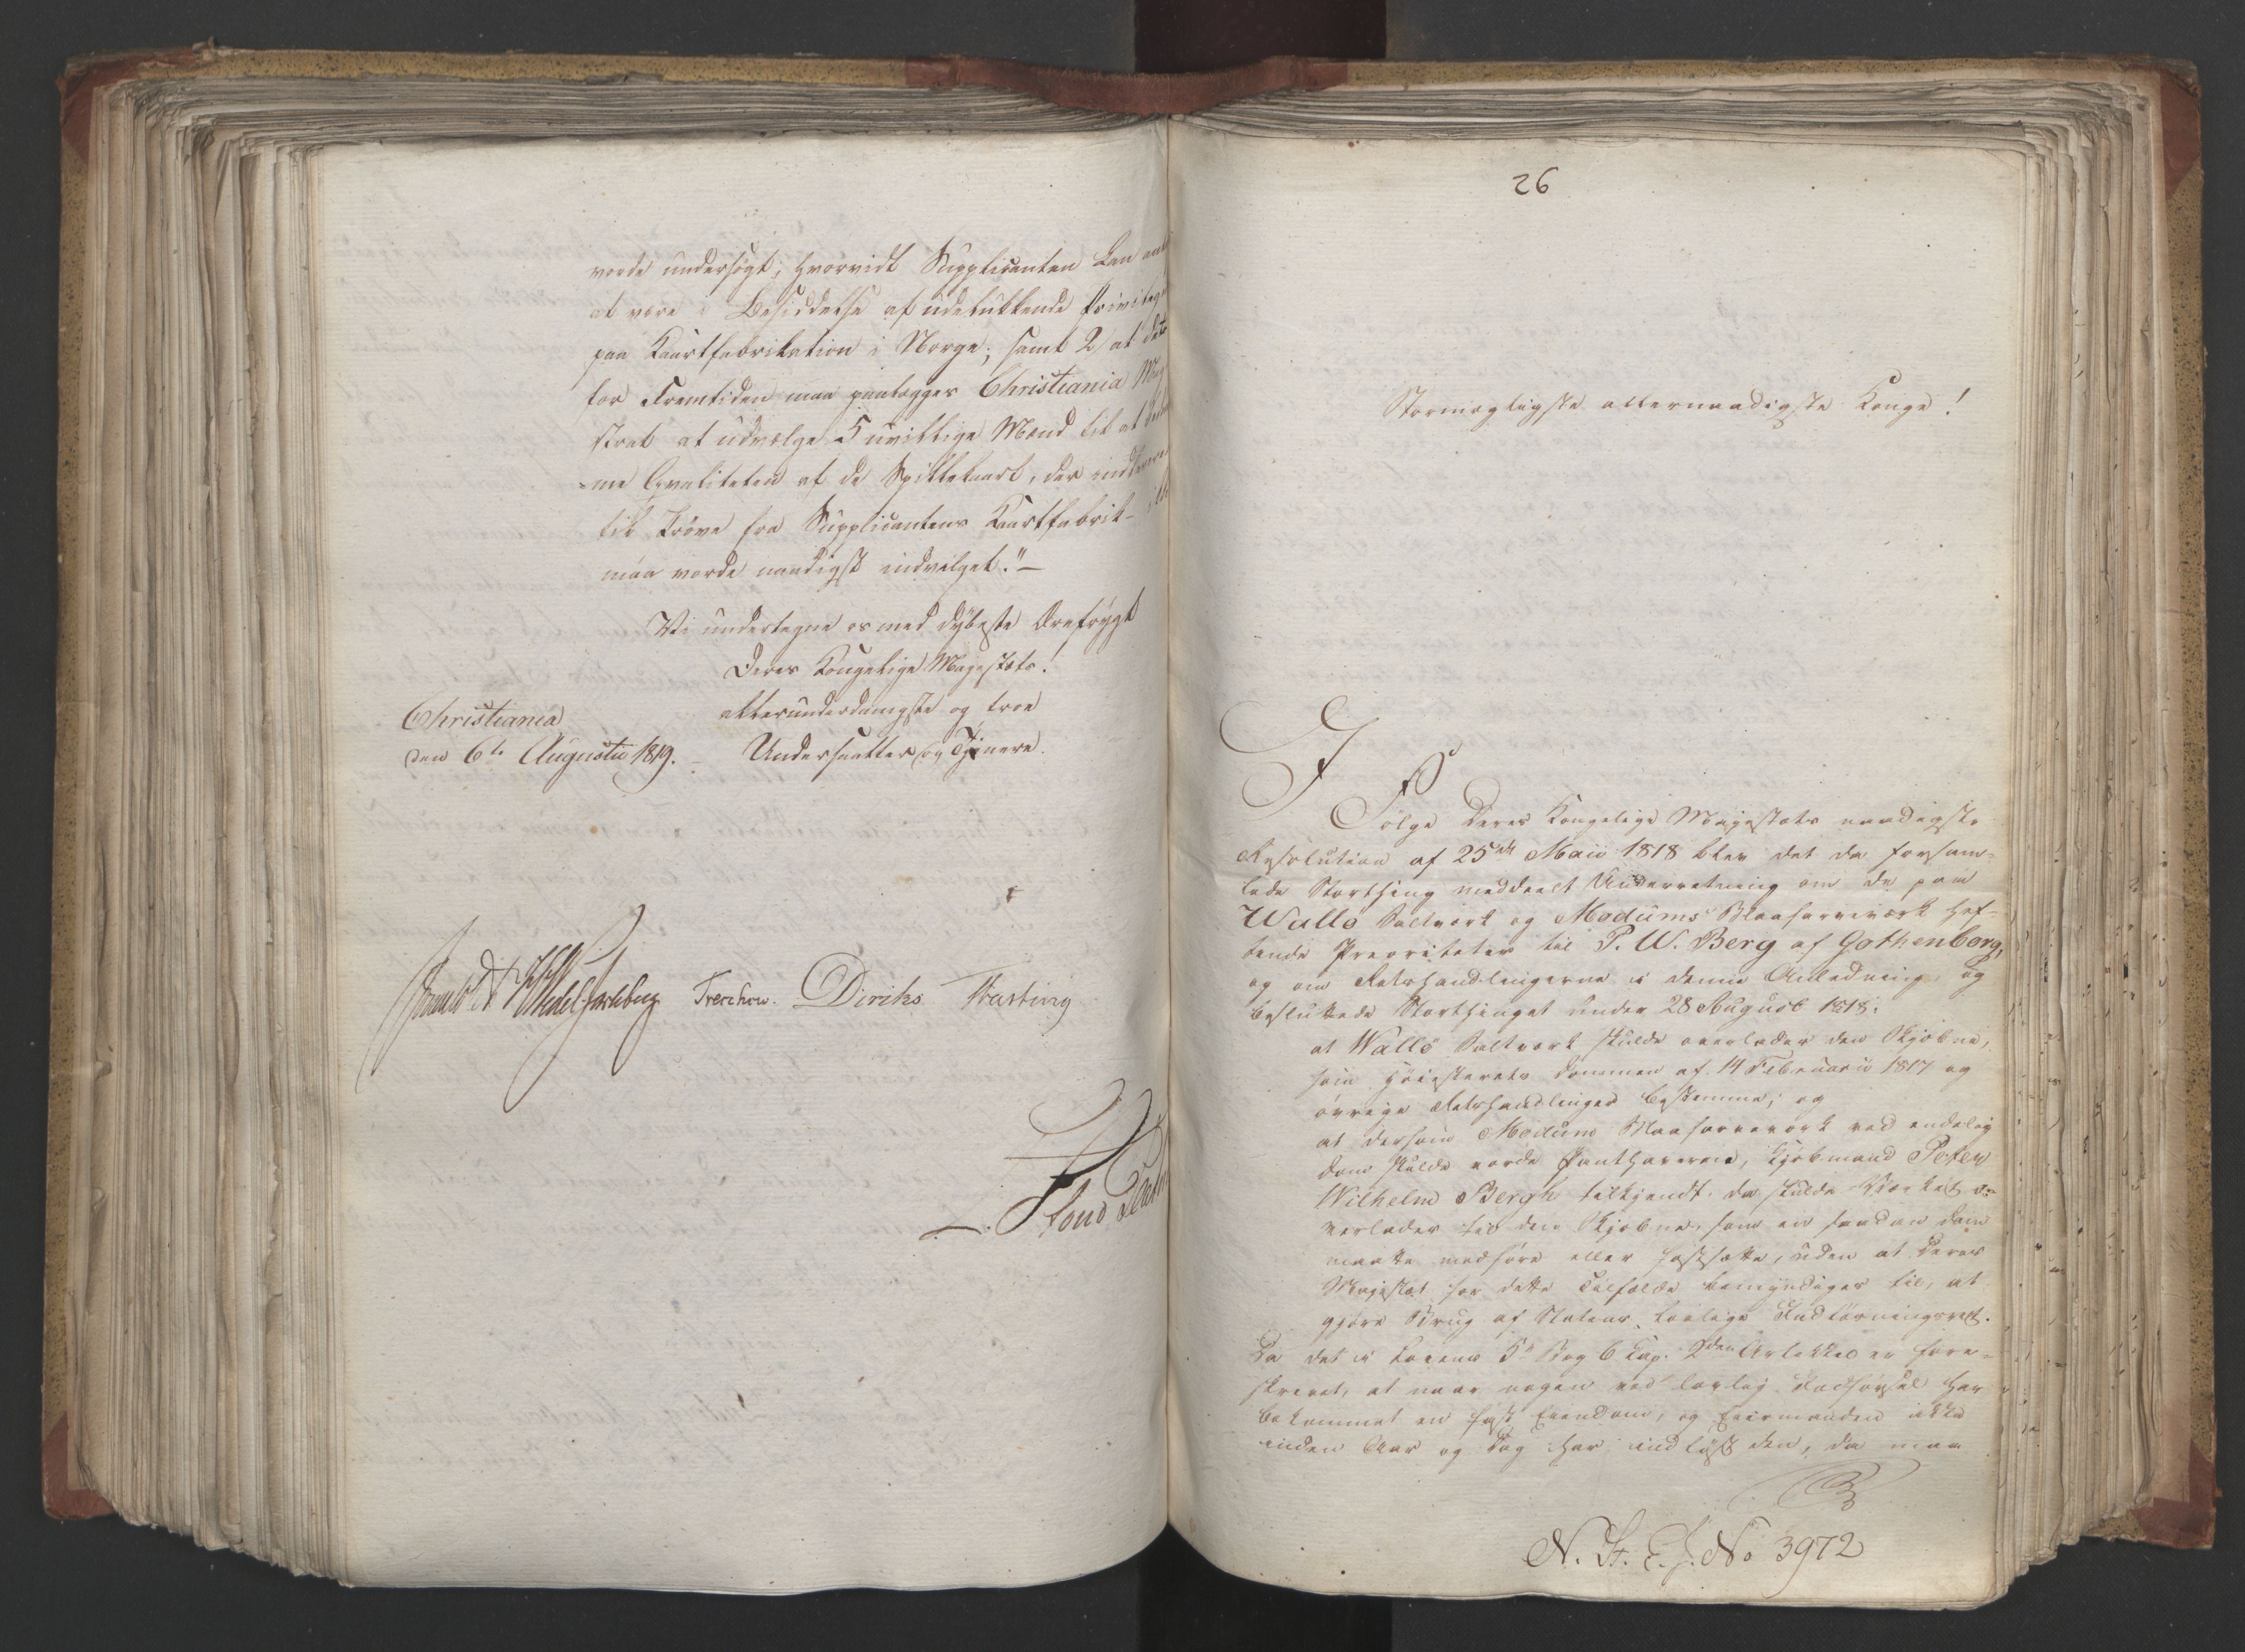 vorde undersøgt, hvorvidt Supplicanten kan
at være i Besiddelse af udelukkende Privileg
paa Kaartfabrikation i Norge; samt 2/ at det
for Fremtiden maa paalægges Christiania Mag
strat at udvælge 5 uvillige Mænd til at
=me Qvaliteten af de Spillekaart, der
til Prøve fra Supplicantens Kaartfabrik-
maa vorde naadigst indvilget." —
Vi undertegne os med dybeste Ærefrygt
Deres Kongelige Majestæts!
allerunderdanigste og troe
Undersaatter og Tjenere.
Christiania
den 6te Augusti 1819.
Wedel-Jarlsberg Treschow. Diriks Fasting
26
Stormægtigste allernaadigste Konge!
I Følge Deres Kongelige Majestæts naadigste
Resolution af 25de Maii 1818 blev det da forsam=
lede Storthing meddeelt Underretning om de paa
Wallø Saltværk og Modums Blaafarveværk hef=
tende Prioriteter til P. W. Berg af Gothenborg,
og om Retshandlingerne i denne Anledning, og
besluttede Storthinget under 28 August 1818:
at Wallø Saltværk skulde overlades den Skjebne,
som Høiesterets Dommen af 14 Februarii 1817 og
øvrige Retshandlinger bestemme; og
at dersom Modum Blaafarveværk ved endelig
Dom skulde vorde Panthaveren, Kjøbmand Peter
Wilhelm Bergh tilkjendt, da skulde Værket o=
verlades til den Skjebne, som en saadan Dom
maatte medføre eller fastsætte, uden at Deres
Majestæt for dette Tilfælde bemyndiges til, at
gjøre Brug af Statens lovlige Indløsningsret.
Da det i Lovens 5te Bog 6 Cap. 2den Artikkel er fore=
skrevet, at naar nogen ved lovlig Indførsel har
bekommet en fast Eiendom, og Eiermanden ikke
inden Aar og Dag har indløst den, da maa
N. St. E. J. No 3972